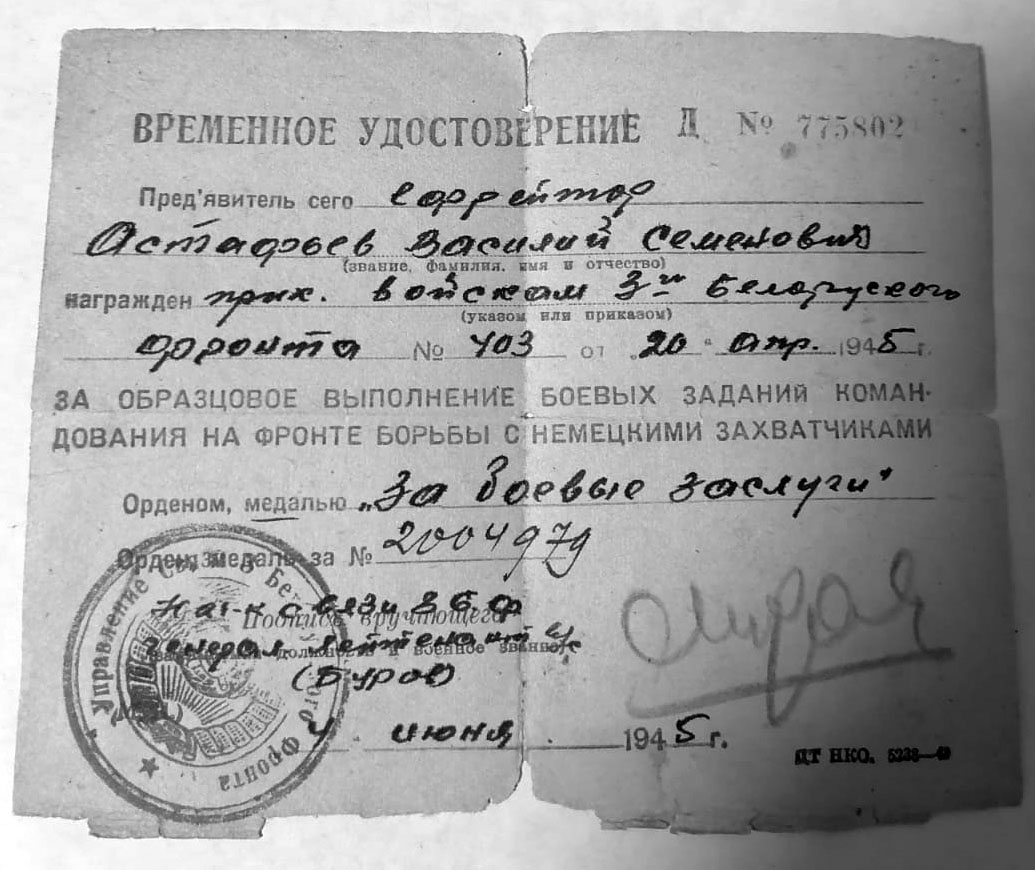 ВРЕМЕННОЕ УДОСТОВЕРЕНИЕ Д № 775802
Пред'явитель сего ефрейтор
Астафьев Василий Семенович
(звание, фамилия, имя и отчество)
награжден прик. войскам 3го Белоруского
(указом или приказом)
фронта № 403 от „20“ апр. 1945 г.
ЗА ОБРАЗЦОВОЕ ВЫПОЛНЕНИЕ БОЕВЫХ ЗАДАНИЙ КОМАН-
ДОВАНИЯ НА ФРОНТЕ БОРЬБЫ С НЕМЕЦКИМИ ЗАХВАТЧИКАМИ
Орденом, медалью „За боевые заслуги“
Орден, медаль за № 2004979
Нач-к связи 3 БФ
Подпись вручающего
генерал лейтенант
военное звание)
(Буров)
Управление Связи 3 Бел
ого Фронта
июня 1945 г.
ДТ НКО.